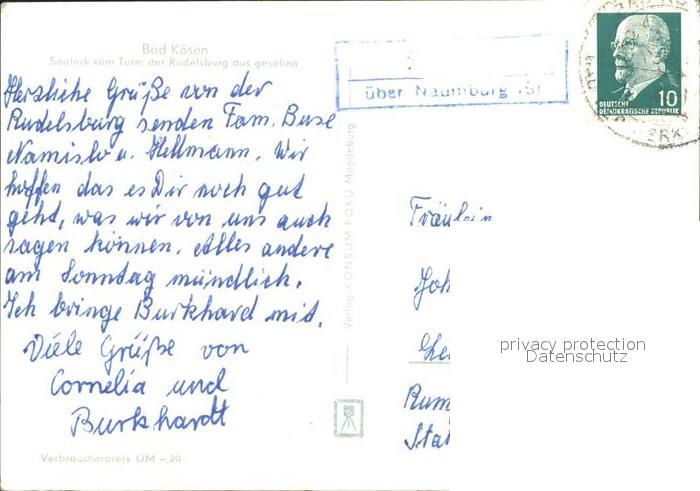 Bad Kösen
Saaleck vom Turm der Rudelsburg aus gesehen
Herzliche Grüße von der
Rudelsburg senden Fam. Buse
Namislo u. Hellmann. Wir
hoffen das es Dir noch gut
geht, was wir von uns auch
sagen können. Alles andere
am Sonntag mündlich.
Ich bringe Burkhard mit.
Viele Grüße von
Cornelia und
Burkhardt
Verbraucherpreis DM -,20
Verlag KONSUM FOKU Magdeburg
über Naumburg (S)
DEUTSCHE
DEMOKRATISCHE REPUBLIK
10
Fräulein
Joh
Rum
Sta
privacy protection
Datenschutz